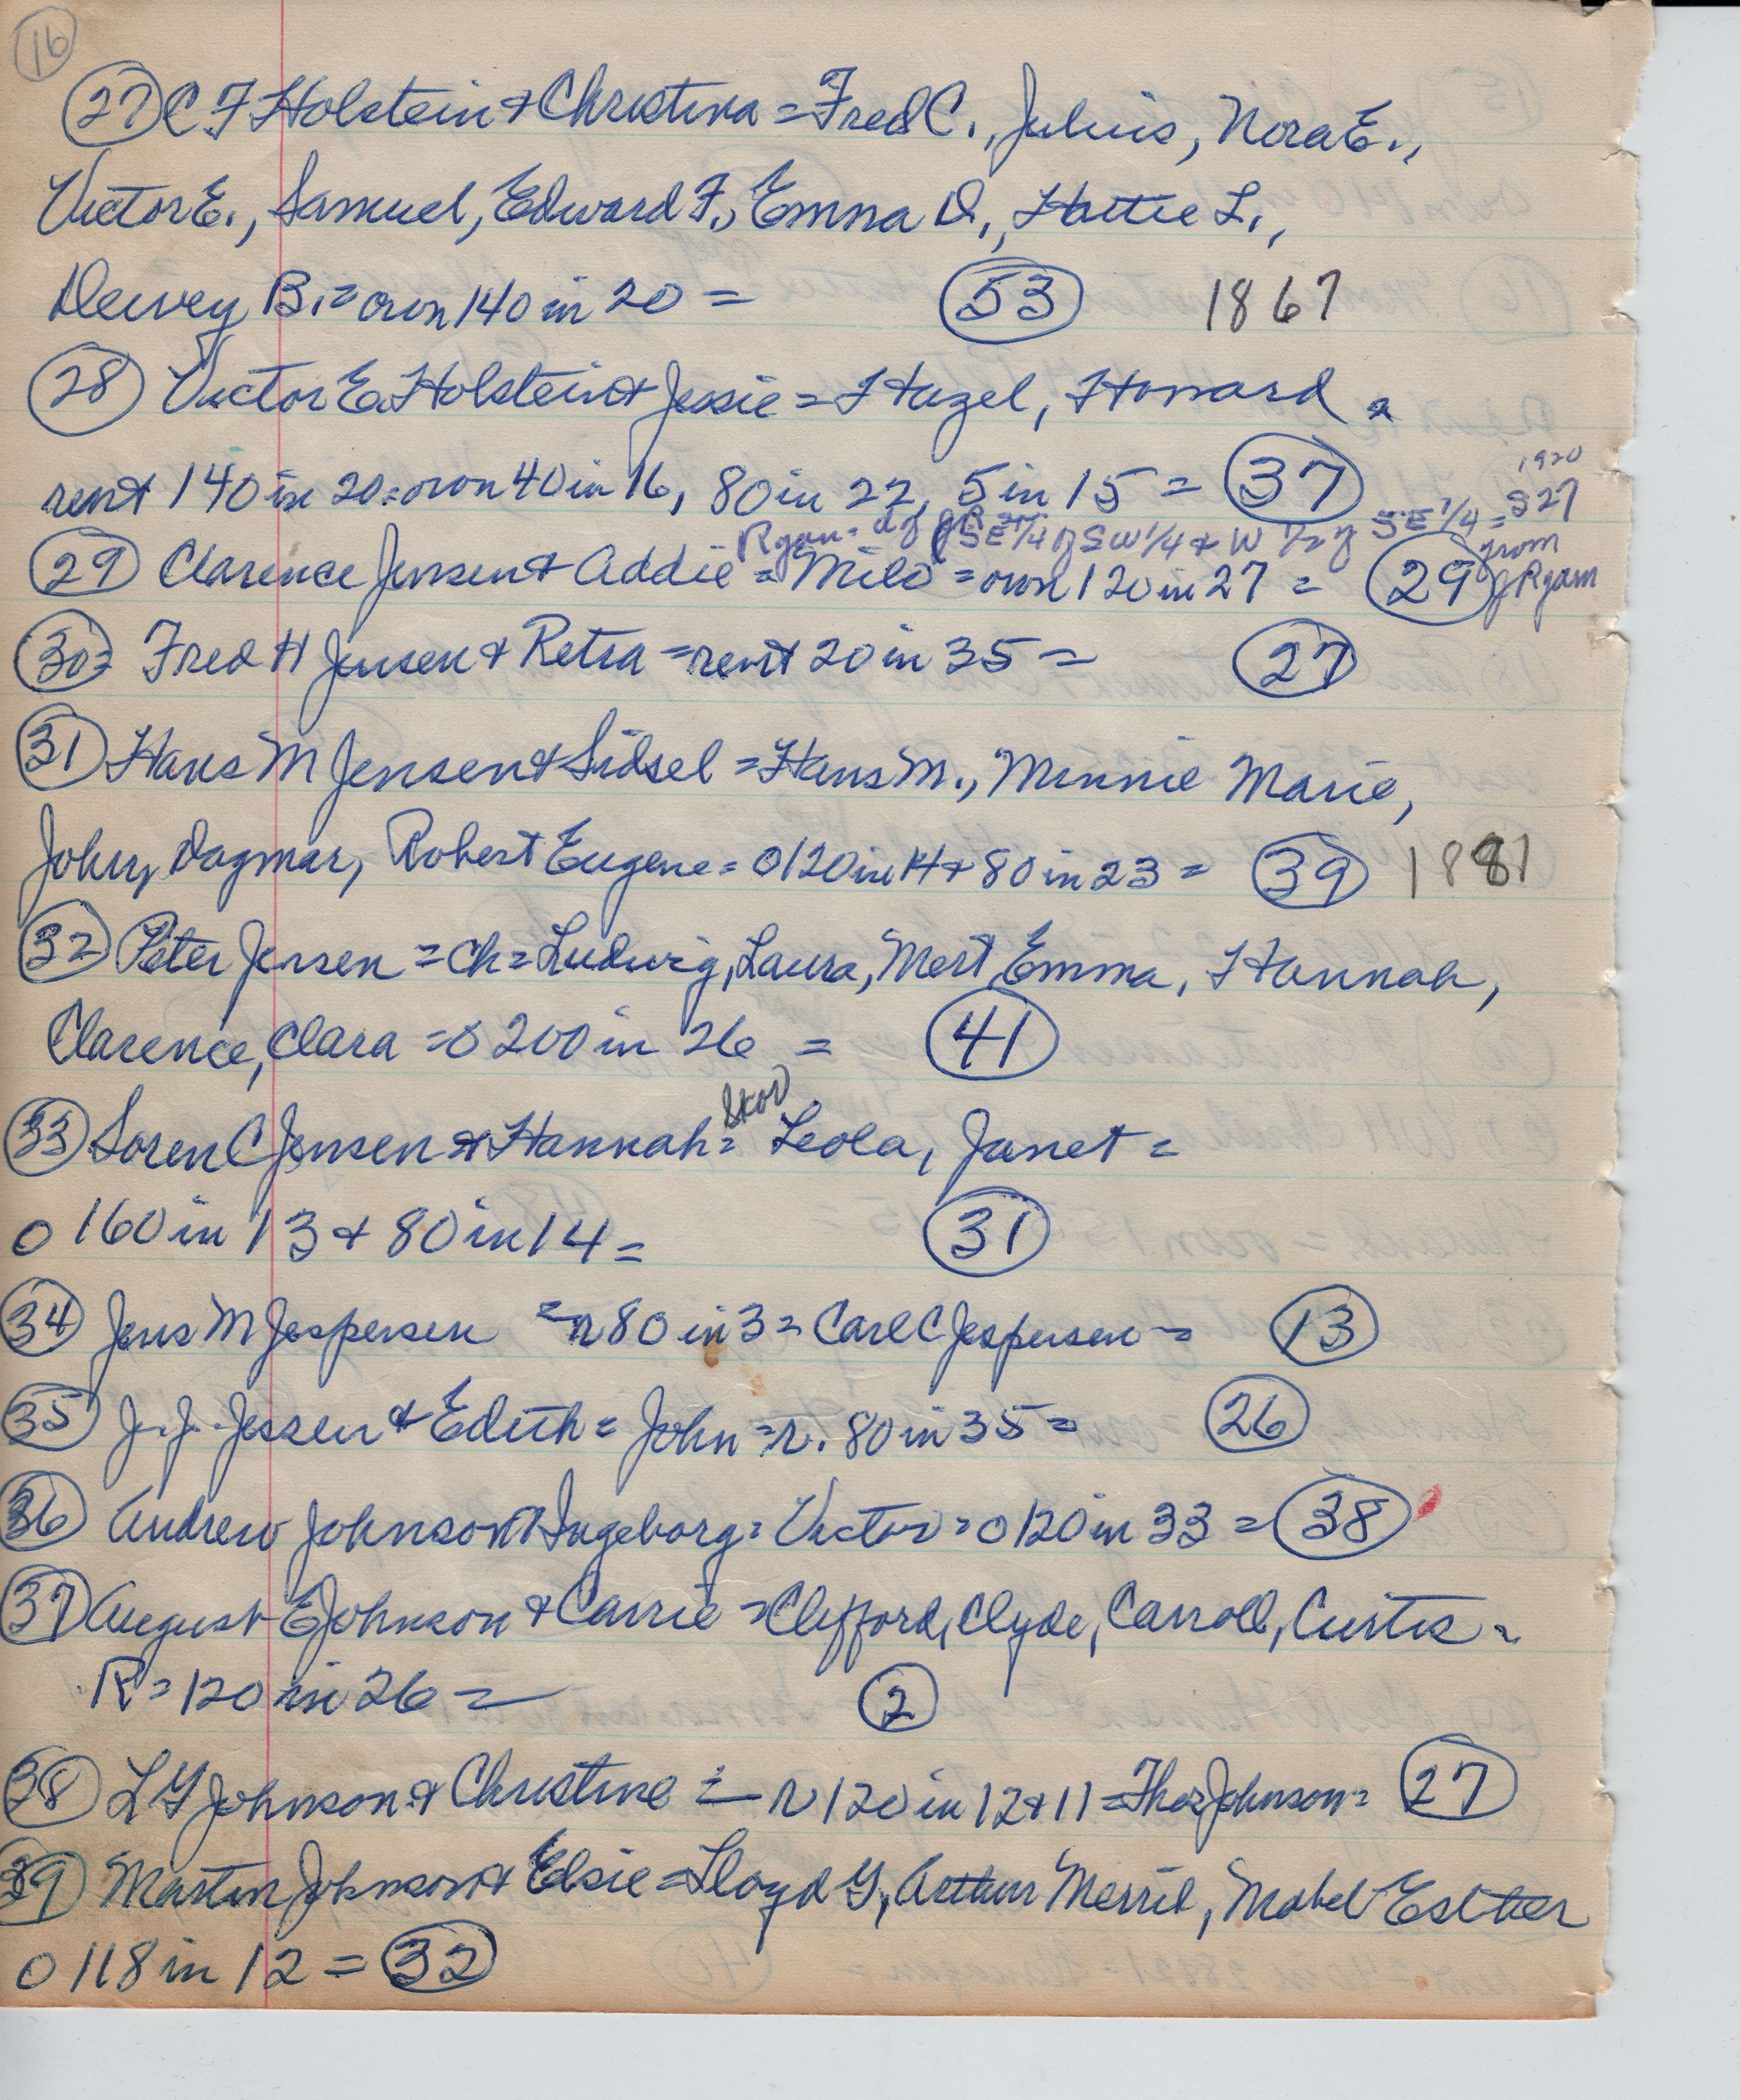 16
27 C F Holstein & Christina = Fred C., Julius, Nora E.,
Victor E., Samuel, Edward F., Emma D., Hattie L.,
Dewey B. = own 140 in 20 = 53 1867
28 Victor E. Holstein & Jessie = Hazel, Howard =
rent 140 in 20 = own 40 in 16, 80 in 22, 5 in 15 = 37
1920
Ryan = d of J R SE 1/4 of SW 1/4 & W 1/2 of SE 1/4 = S27
29 Clarence Jensen & Addie = Milo = own 120 in 27 = 29 from J Ryan
30 = Fred H Jensen & Retra = rent 20 in 35 = 27
31 Hans M Jensen & Sidsel = Hans M., Minnie Marie,
John, Dagmar, Robert Eugene = O 120 in 14 & 80 in 23 = 39 1881
32 Peter Jensen = Ch = Ludwig, Laura, Mert, Emma, Hannah,
Clarence, Clara = O 200 in 26 = 41
Skov
33 Soren C Jensen & Hannah = Leola, Janet =
O 160 in 13 & 80 in 14 = 31
34 Jens M Jespersen = r 80 in 3 = Carl C Jespersen = 13
35 J. J. Jessen & Edith = John = r. 80 in 35 = 26
36 Andrew Johnson & Ingeborg = Victor = O 120 in 33 = 38
37 August E Johnson & Carrie = Clifford, Clyde, Carroll, Curtis =
R = 120 in 26 = 2
38 L G Johnson & Christine = r 120 in 12 & 11 = Thos Johnson = 27
39 Martin Johnson & Elsie = Lloyd G, Arthur Merril, Mabel Esther
O 118 in 12 = 32